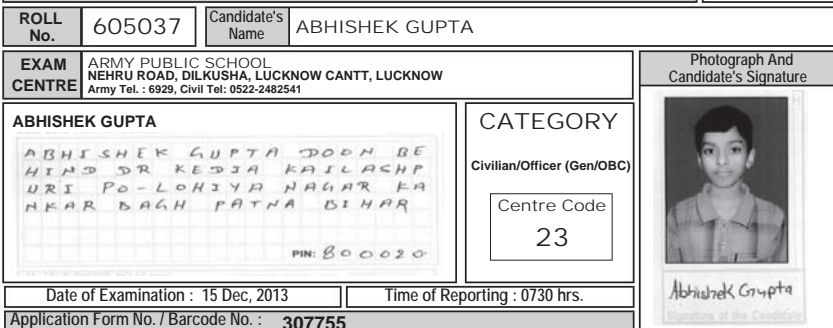 ROLL No. 605037 Candidate's Name ABHISHEK GUPTA
EXAM CENTRE
ARMY PUBLIC SCHOOL
NEHRU ROAD, DILKUSHA, LUCKNOW CANTT, LUCKNOW
Army Tel. : 6929, Civil Tel: 0522-2482541
Photograph And
Candidate's Signature
ABHISHEK GUPTA
ABHISHEK GUPTA DOON BE
HIND DR KEDIA KAILASHP
URI PO-LOHIYA NAGAR KA
NKAR BAGH PATNA BIHAR
PIN: 800020
CATEGORY
Civilian/Officer (Gen/OBC)
Centre Code
23
Abhishek Gupta
Signature of the Candidate
Date of Examination : 15 Dec, 2013
Time of Reporting : 0730 hrs.
Application Form No. / Barcode No. : 307755